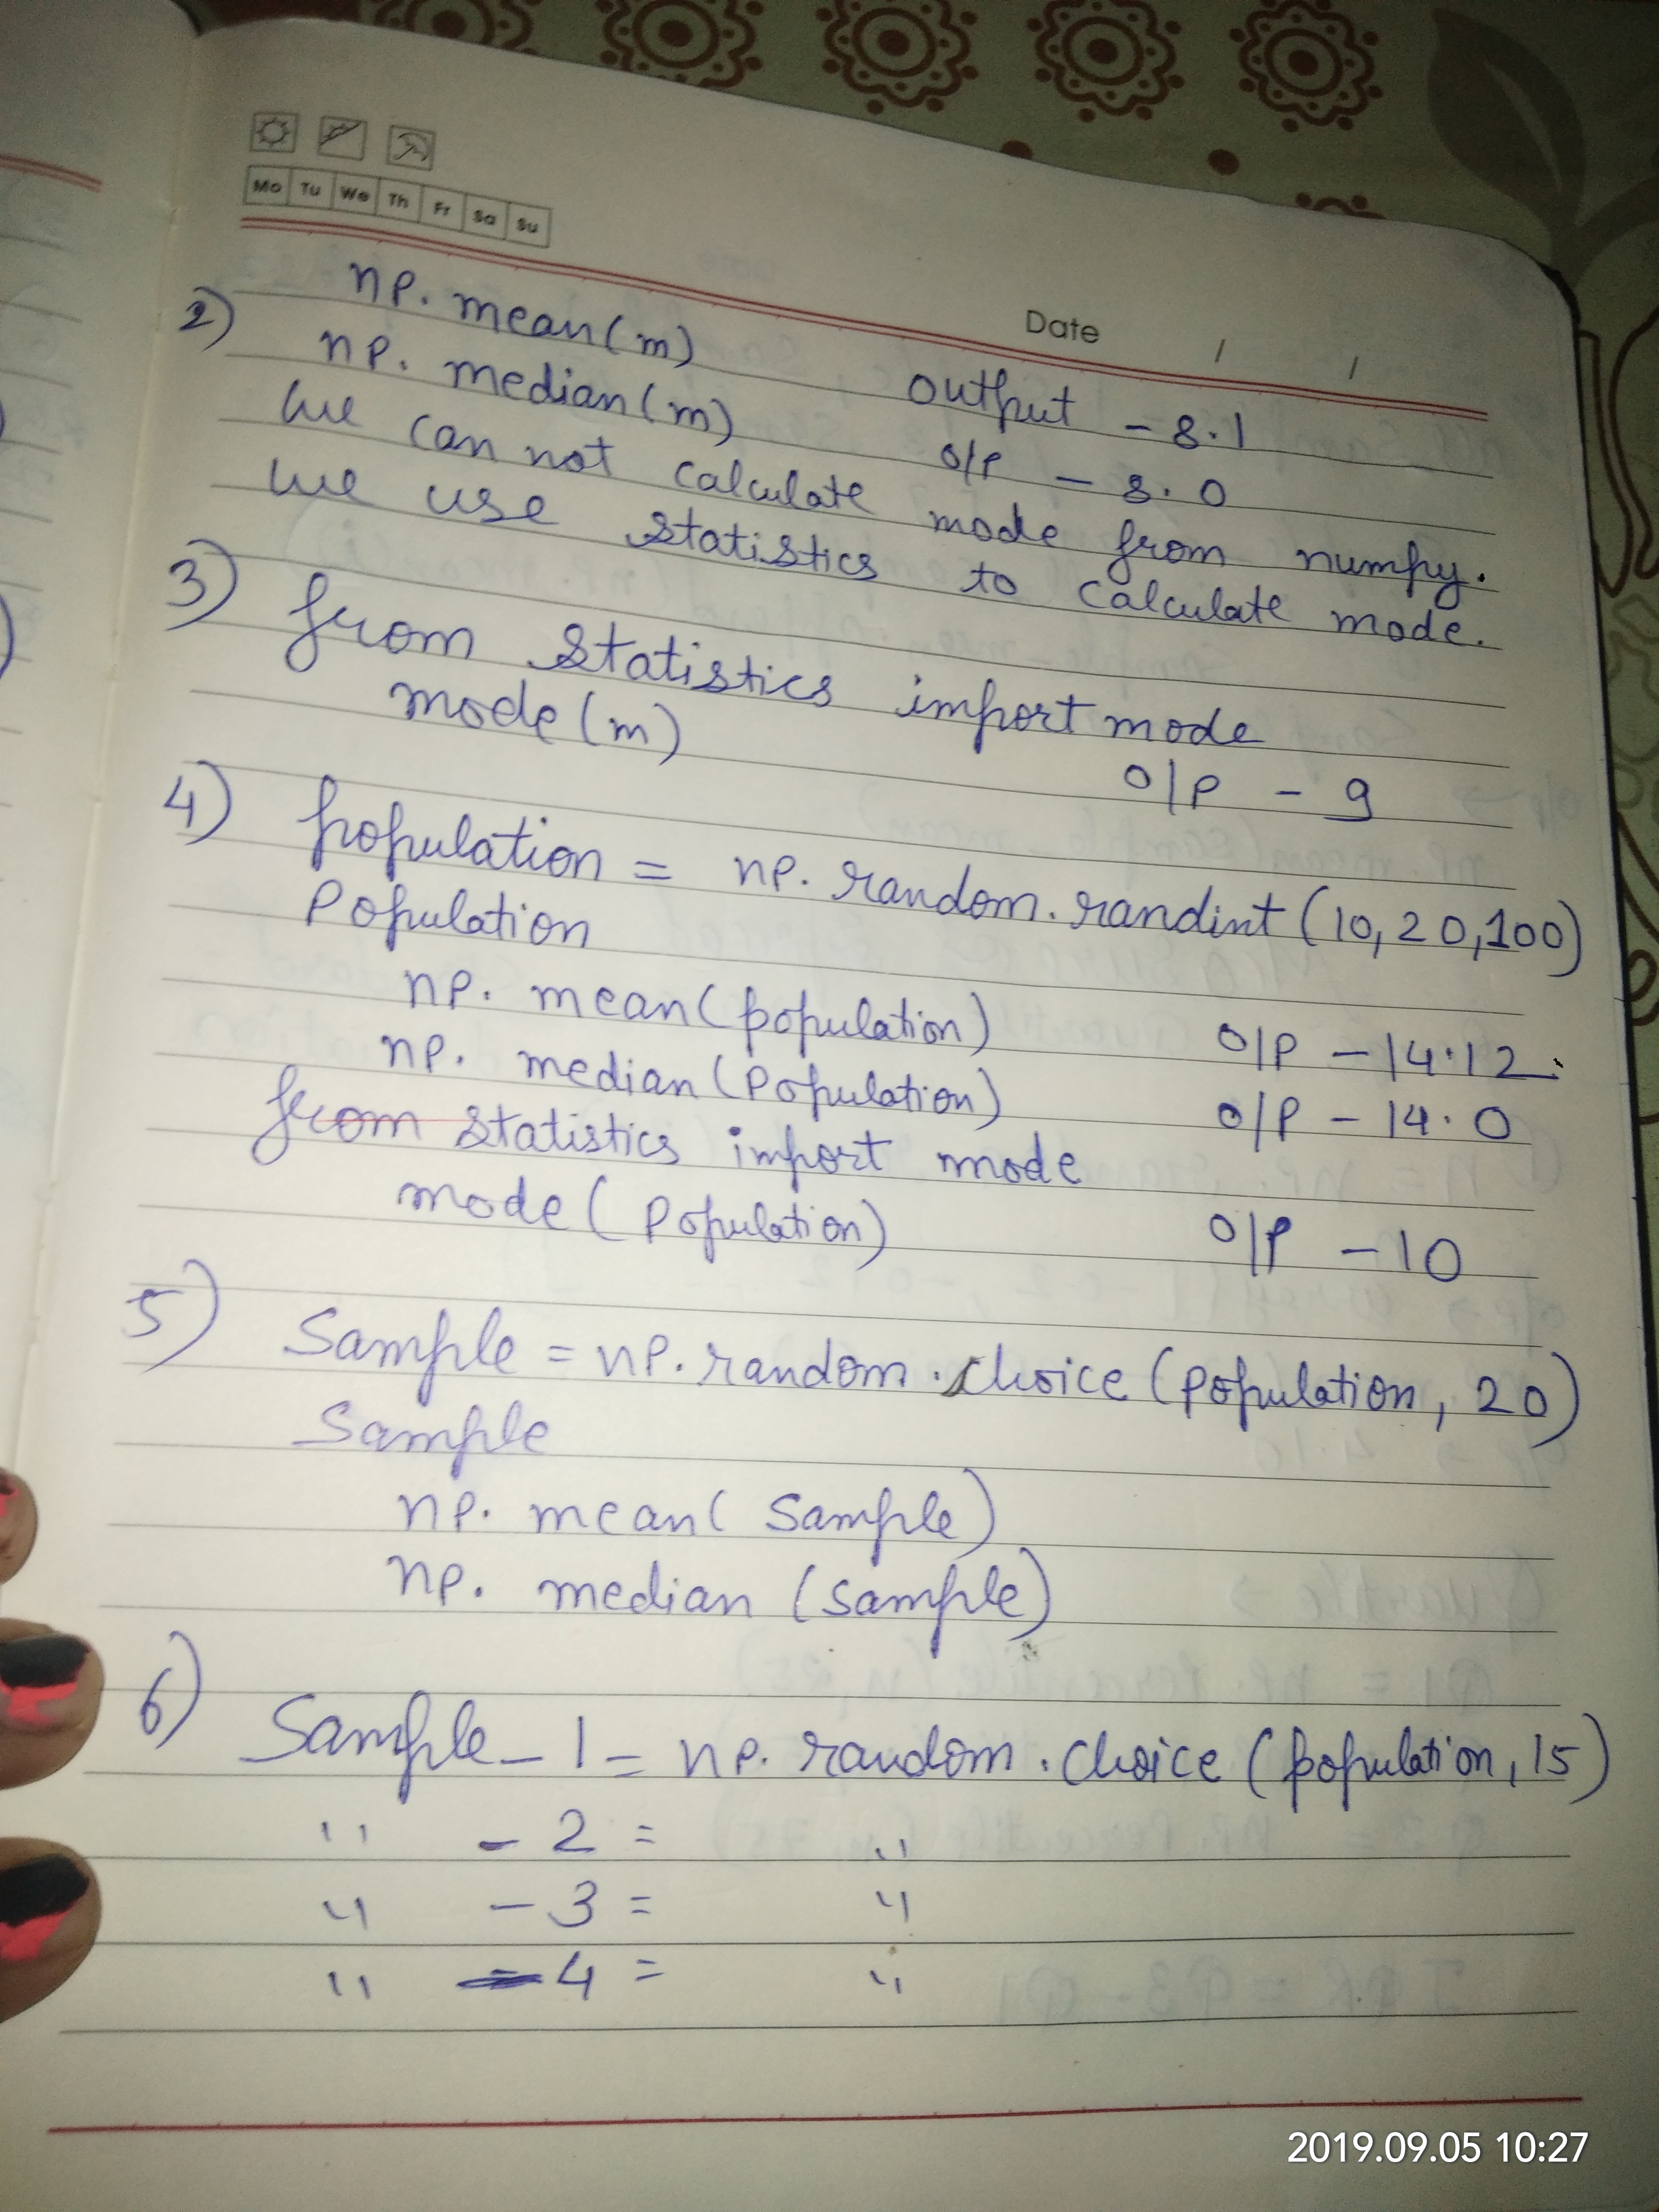 Mo Tu We Th Fr Sa Su
Date / /
2) np. mean(m) output - 8.1
np. median(m) o/p - 8.0
we can not calculate mode from numpy.
we use statistics to calculate mode.
3) from statistics import mode
mode(m) o/p - 9
4) population = np. random. randint (10, 20, 100)
Population
np. mean(population) o/p - 14.12
np. median(Population) o/p - 14.0
from statistics import mode
mode(Population) o/p - 10
5) Sample = np. random. choice (population, 20)
Sample
np. mean( Sample)
np. median (sample)
6) Sample_1 = np. random. choice (population, 15)
" - 2 = "
" - 3 = "
" - 4 = "
2019.09.05 10:27